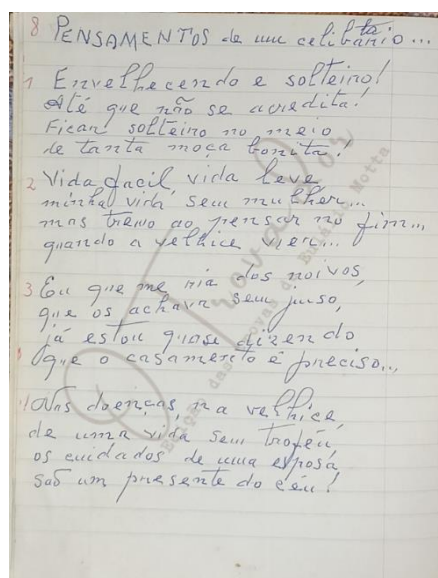 8 PENSAMENTOS de um celibatário...
1 Envelhecendo e solteiro!
Até que não se acredita!
Ficar solteiro no meio
de tanta moça bonita!
2 Vida facil, vida leve
minha vida sem mulher...
mas tremo ao pensar no fim...
quando a velhice vier...
3 Eu que me ria dos noivos,
que os achava sem juiso,
já estou quase dizendo
que o casamento é preciso...
4 Nas doenças, na velhice,
de uma vida sem troféu,
os cuidados de uma esposa
são um presente do céu!
Edição das Trovas de Eulálio Motta